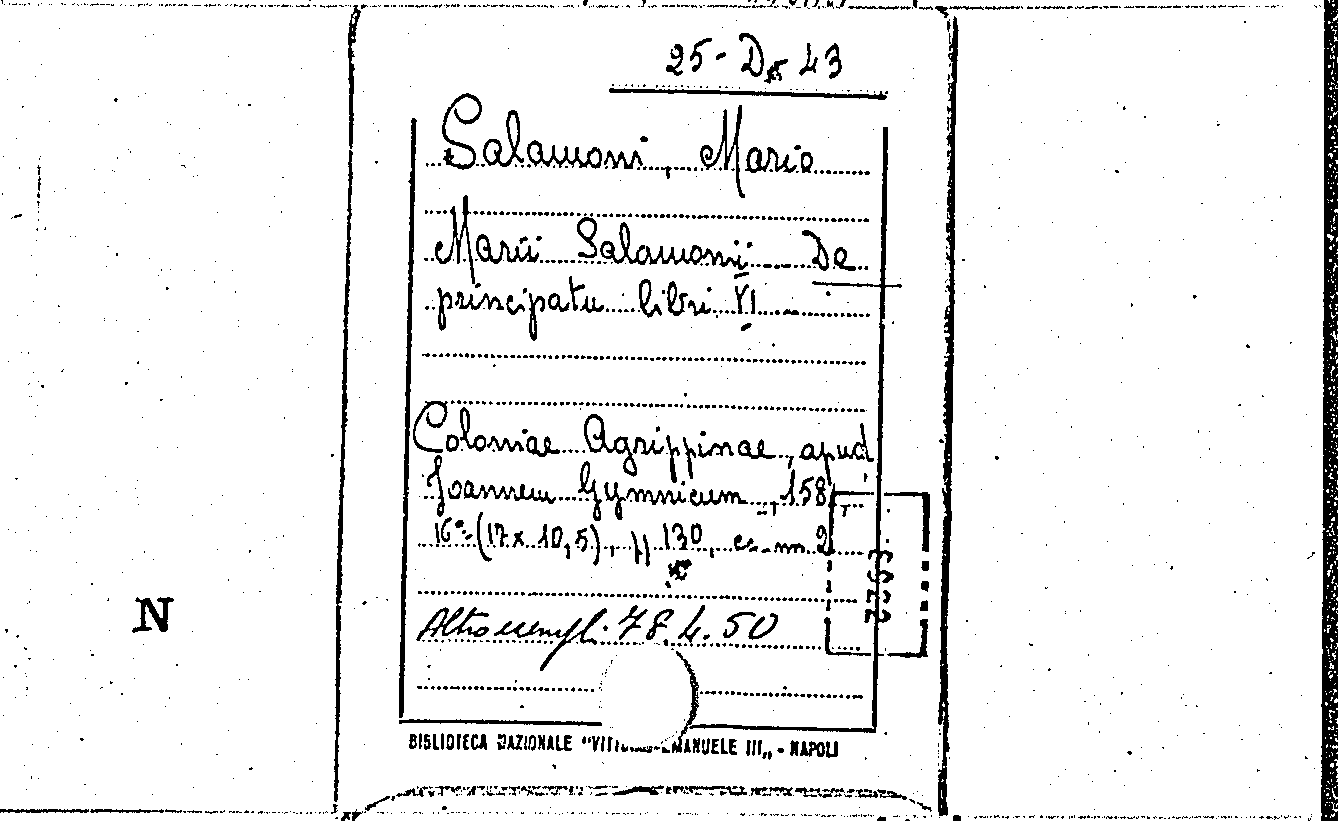 25-D 43
Salamoni, Mario
Marii Salamonii De
principatu libri VI
Coloniae Agrippinae, apud
Joannem Gymnicum, 158
16°-(17x10,5), pp 130, cc. nn 2
N
Altro esempl. 78.4.50
BIBLIOTECA NAZIONALE "VITTORIO EMANUELE III„ - NAPOLI